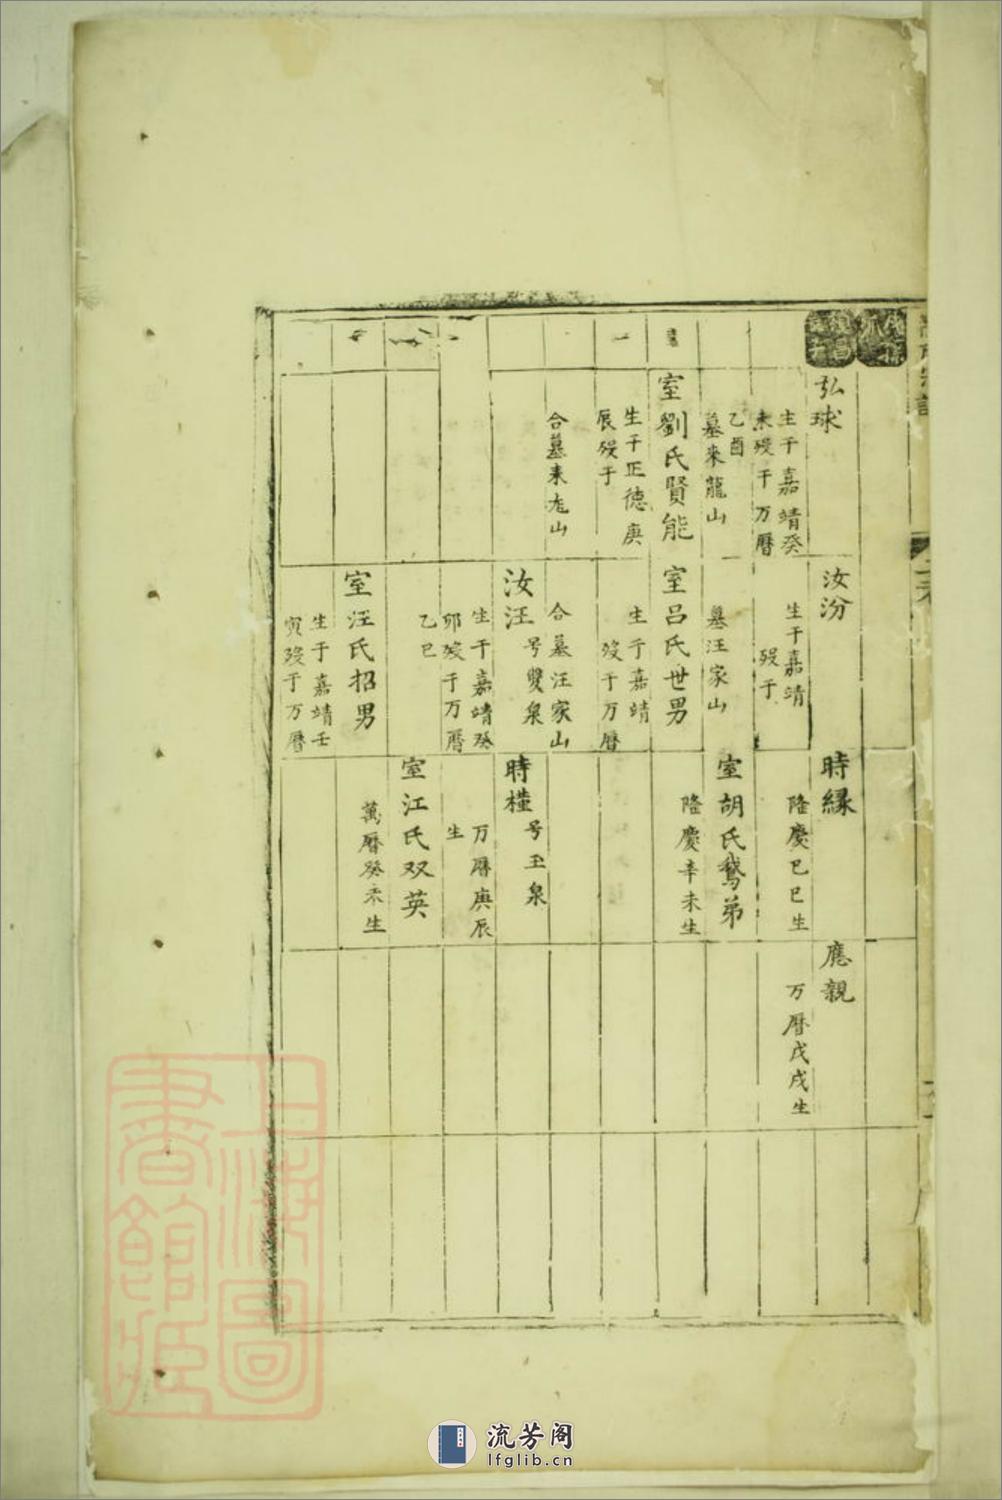 弘球
生于嘉靖癸
未殁于万曆
乙酉
墓來龍山
室劉氏賢能
生于正德庚
辰殁于
合墓來龙山
汝汾
生于嘉靖
殁于
墓汪家山
室呂氏世男
生于嘉靖
殁于万曆
合墓汪家山
汝汪
号雙泉
生于嘉靖癸
卯殁于万曆
乙巳
室汪氏招男
生于嘉靖壬
寅殁于万曆
時緣
隆慶己巳生
室胡氏鵞弟
隆慶辛未生
時槿
号玉泉
万曆庚辰
生
室江氏双英
萬曆癸未生
應親
万曆戊戌生
上海圖
書館藏
流芳阁
lfglib.cn